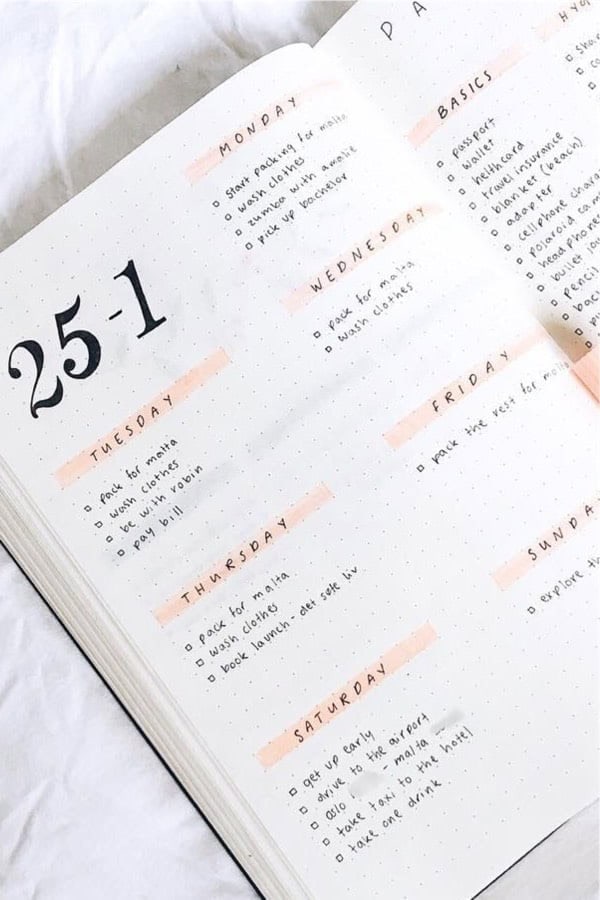 25-1
MONDAY
start packing for malta
wash clothes
zumba with amalie
pick up bachelor
TUESDAY
pack for malta
wash clothes
be with robin
pay bill
WEDNESDAY
pack for malta
wash clothes
THURSDAY
pack for malta
wash clothes
book launch - det søte liv
FRIDAY
pack the rest for malta
SATURDAY
get up early
drive to the airport
oslo - malta
take taxi to the hotel
take one drink
SUNDAY
explore
PA
BASICS
passport
wallet
helthcard
travel insurance
blanket (beach)
adapter
cellphone
polaroid
headphones
bullet
pencil